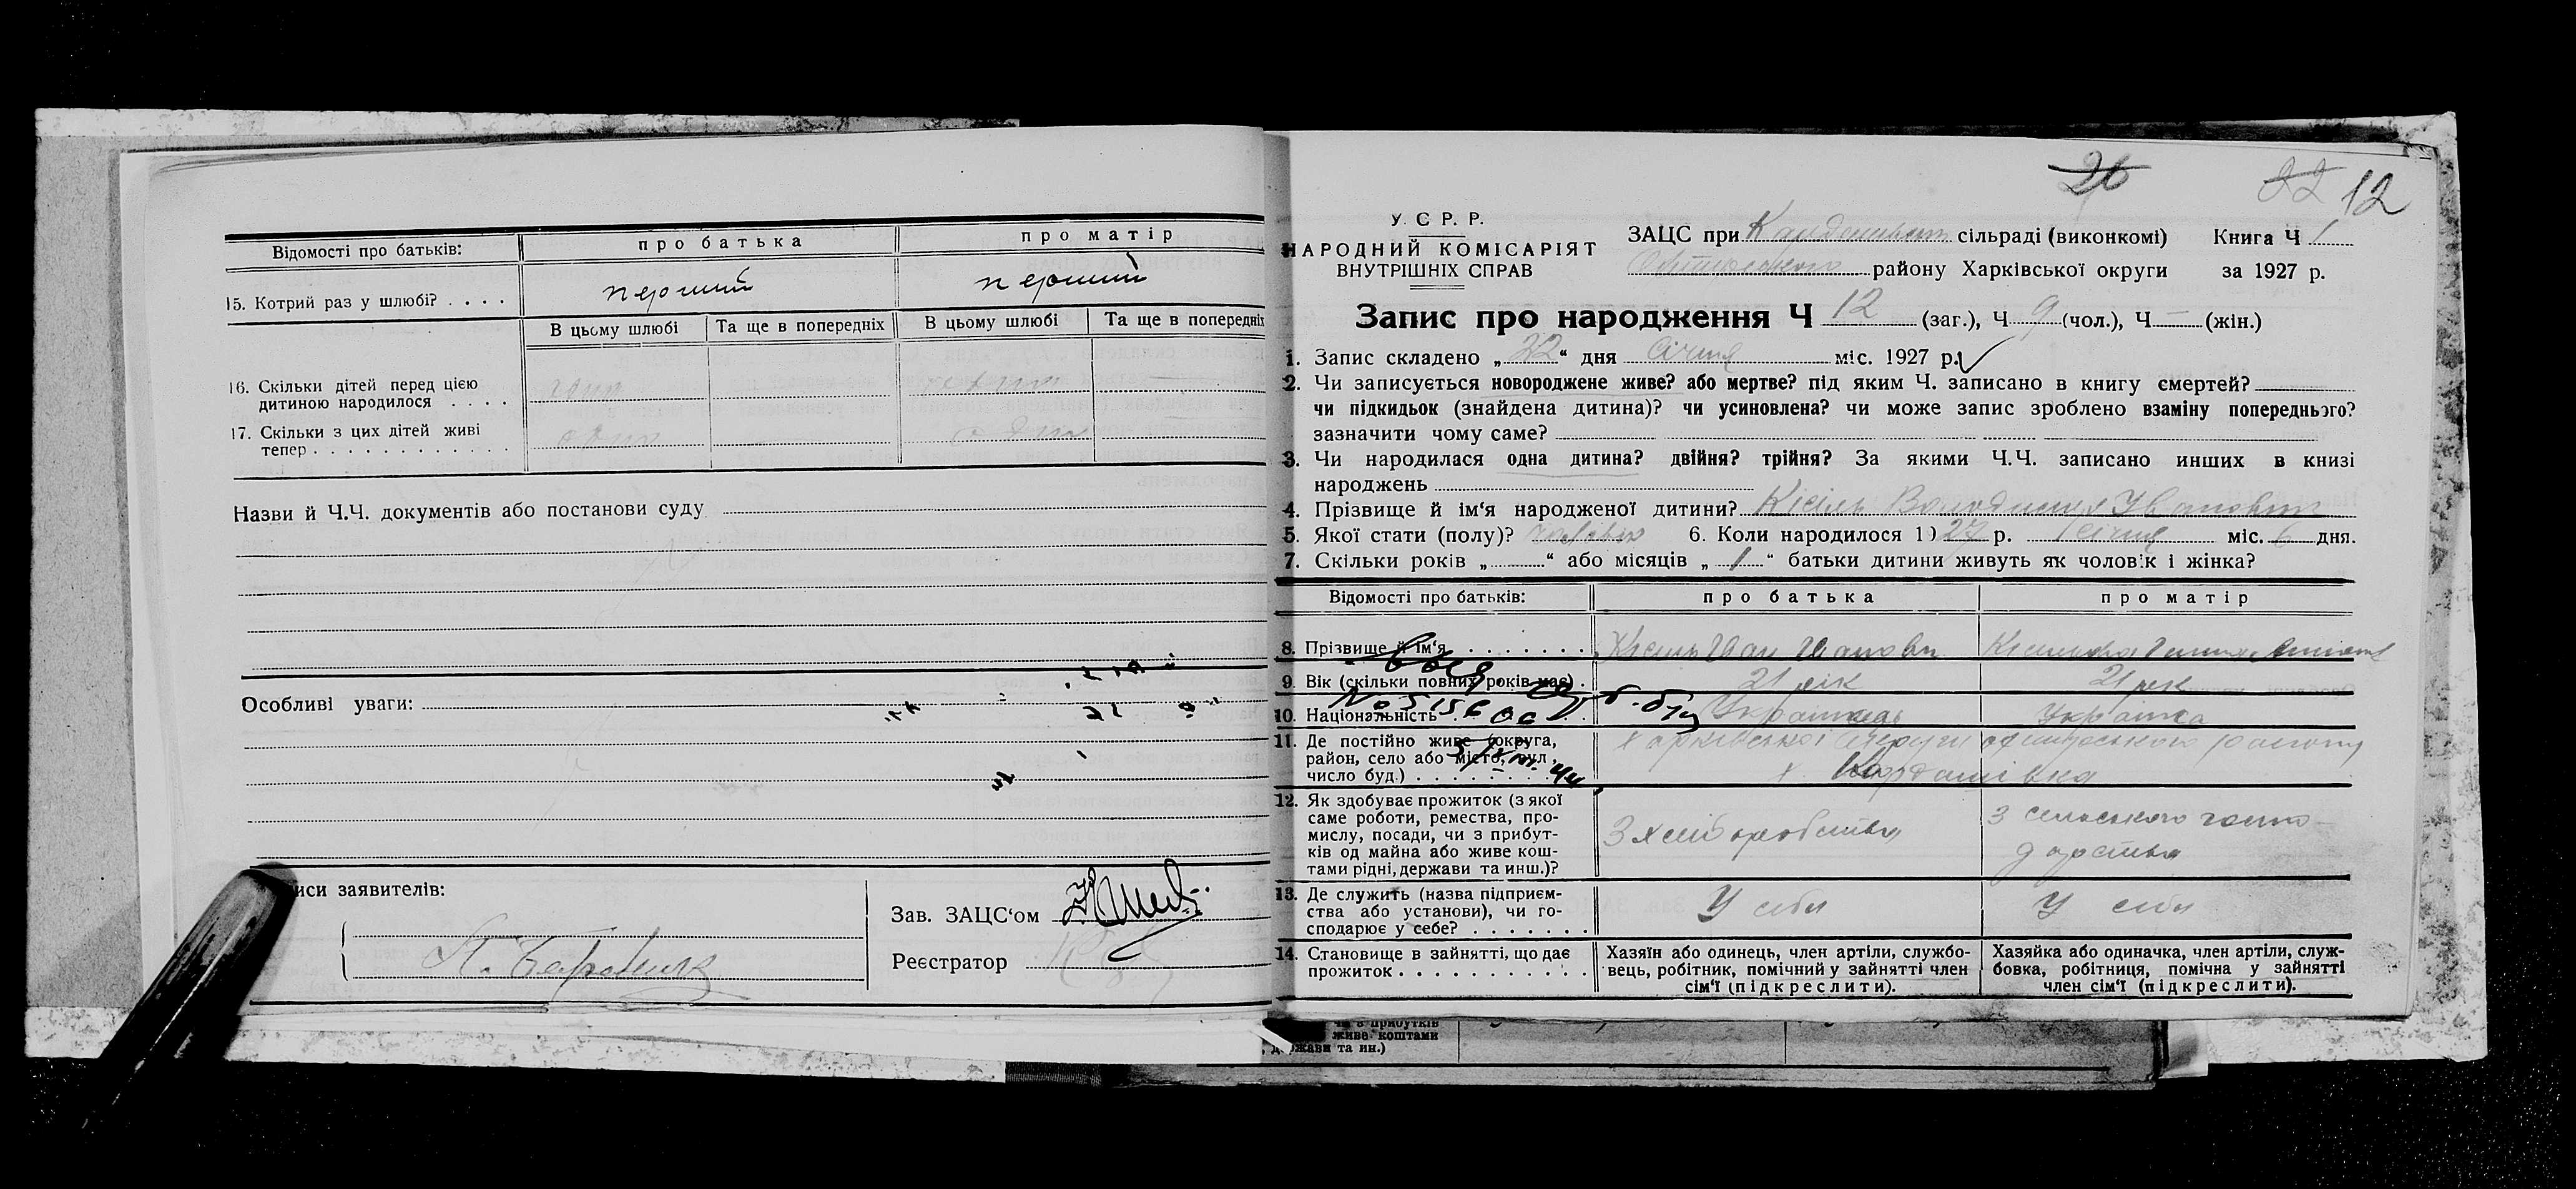 Відомості про батьків: про батька про матір
15. Котрий раз у шлюбі? . . . . перший перший
В цьому шлюбі Та ще в попередніх В цьому шлюбі Та ще в попередніх
16. Скільки дітей перед цією
дитиною народилося . . . .
17. Скільки з цих дітей живі
тепер . . . . . . . . . . . . один один
Назви й Ч.Ч. документів або постанови суду
Особливі уваги:
иси заявителів:
Зав. ЗАЦС'ом
Реєстратор
26 22 12
У. С Р. Р.
НАРОДНИЙ КОМІСАРІЯТ
ВНУТРІШНІХ СПРАВ
ЗАЦС при сільраді (виконкомі) Книга Ч 1
району Харківської округи за 1927 р.
Запис про народження Ч 12 (заг.), Ч 9 (чол.), Ч — (жін.)
1. Запис складено „22“ дня січня міс. 1927 р.
2. Чи записується новороджене живе? або мертве? під яким Ч. записано в книгу смертей?
чи підкидьок (знайдена дитина)? чи усиновлена? чи може запис зроблено взаміну попереднього?
зазначити чому саме?
3. Чи народилася одна дитина? двійня? трійня? За якими Ч.Ч. записано инших в книзі
народжень
4. Прізвище й ім'я народженої дитини? Кисіль Володимир Іванович
5. Якої стати (полу)? 6. Коли народилося 1927 р. січня міс. 6 дня.
7. Скільки років „ “ або місяців „ 1 “ батьки дитини живуть як чоловік і жінка?
Відомості про батьків: про батька про матір
8. Прізвище й ім'я . . . . . . . . Кисіль Иван Иванович
9. Вік (скільки повних років має) . 21 рік 21 рік
10. Національність Українець Українка
11. Де постійно живе (округа,
район, село або місто, вул.,
число буд.) . . . . . . . . . Харківської округи району
х. Кардашівка
12. Як здобуває прожиток (з якої
саме роботи, ремества, про-
мислу, посади, чи з прибут-
ків од майна або живе кош-
тами рідні, держави та инш.)?
З хліборобства
з сельського госпо-
дарства
13. Де служить (назва підприєм-
ства або установи), чи го-
сподарює у себе? . . . . . . . У себе У себе
14. Становище в зайнятті, що дає
прожиток . . . . . . . . . . .
Хазяїн або одинець, член артіли, службо-
вець, робітник, помічний у зайнятті член
сім'ї (підкреслити).
Хазяйка або одиначка, член артіли, служ-
бовка, робітниця, помічна у зайнятті
член сім'ї (підкреслити).
чи з прибутків
живе коштами
жави та ин.)